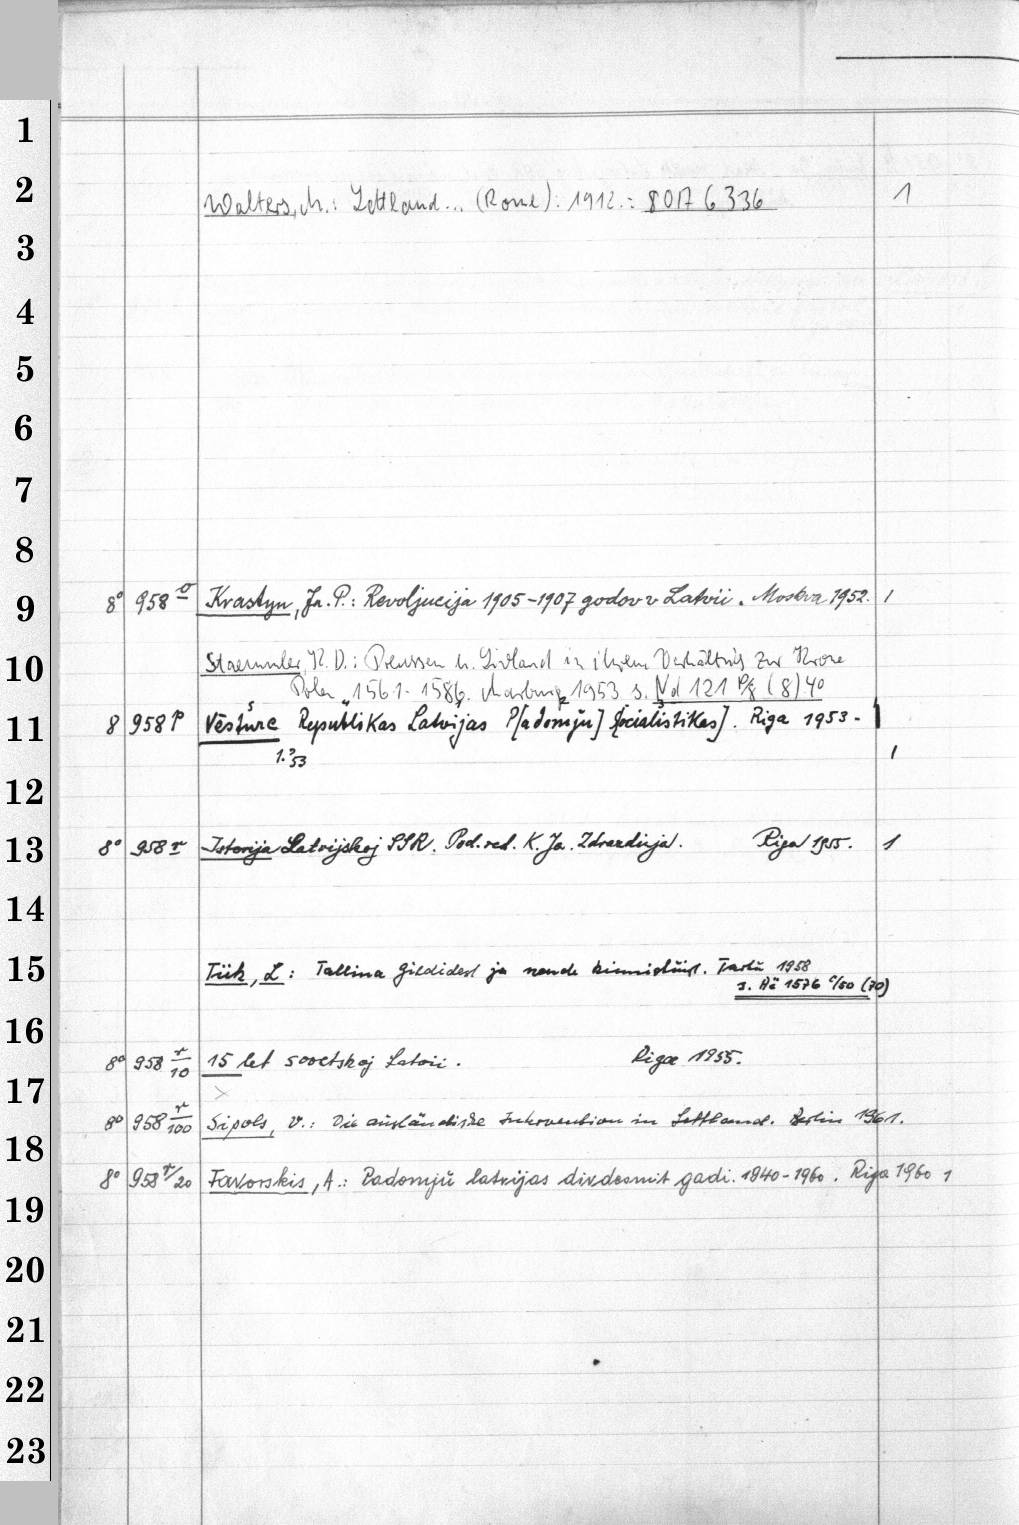 1
2
Walters, M.: Lettland... (Rome): 1912.: 80A 6336 1
3
4
5
6
7
8
9
8° 958 o Krastyn, Ja. P.: Revoljucija 1905-1907 godov v Latvii. Moskva 1952. 1
10
Staemmler, K. D.: Preussen u. Livland in ihrem Verhältnis zur Krone
Polen 1561-1586. Marburg 1953 s. Nd 121 (8) 40
11
8 958 p Vēsture Republikas Latvijas P[adomju] Socialistikas]. Riga 1953-
1. 53 1
12
13
8° 958 r Istorija Latvijskoj SSR. Pod. red. K. Ja. Riga 1955. 1
14
15
Tiik, L: Tallina Gildidest ja nende Tartu 1958
s. 1576 c/50 (70)
16
8° 958 r/10 15 let sovetskoj Latvii. Riga 1955.
17
8° 958 r/100 Sipols, V.: Die ausländische Intervention in Lettland. Berlin 1961.
18
8° 958 r/20 Favorskis, A.: Padomjū latvijas divdesmit gadi. 1940-1960. Riga 1960 1
19
20
21
22
23